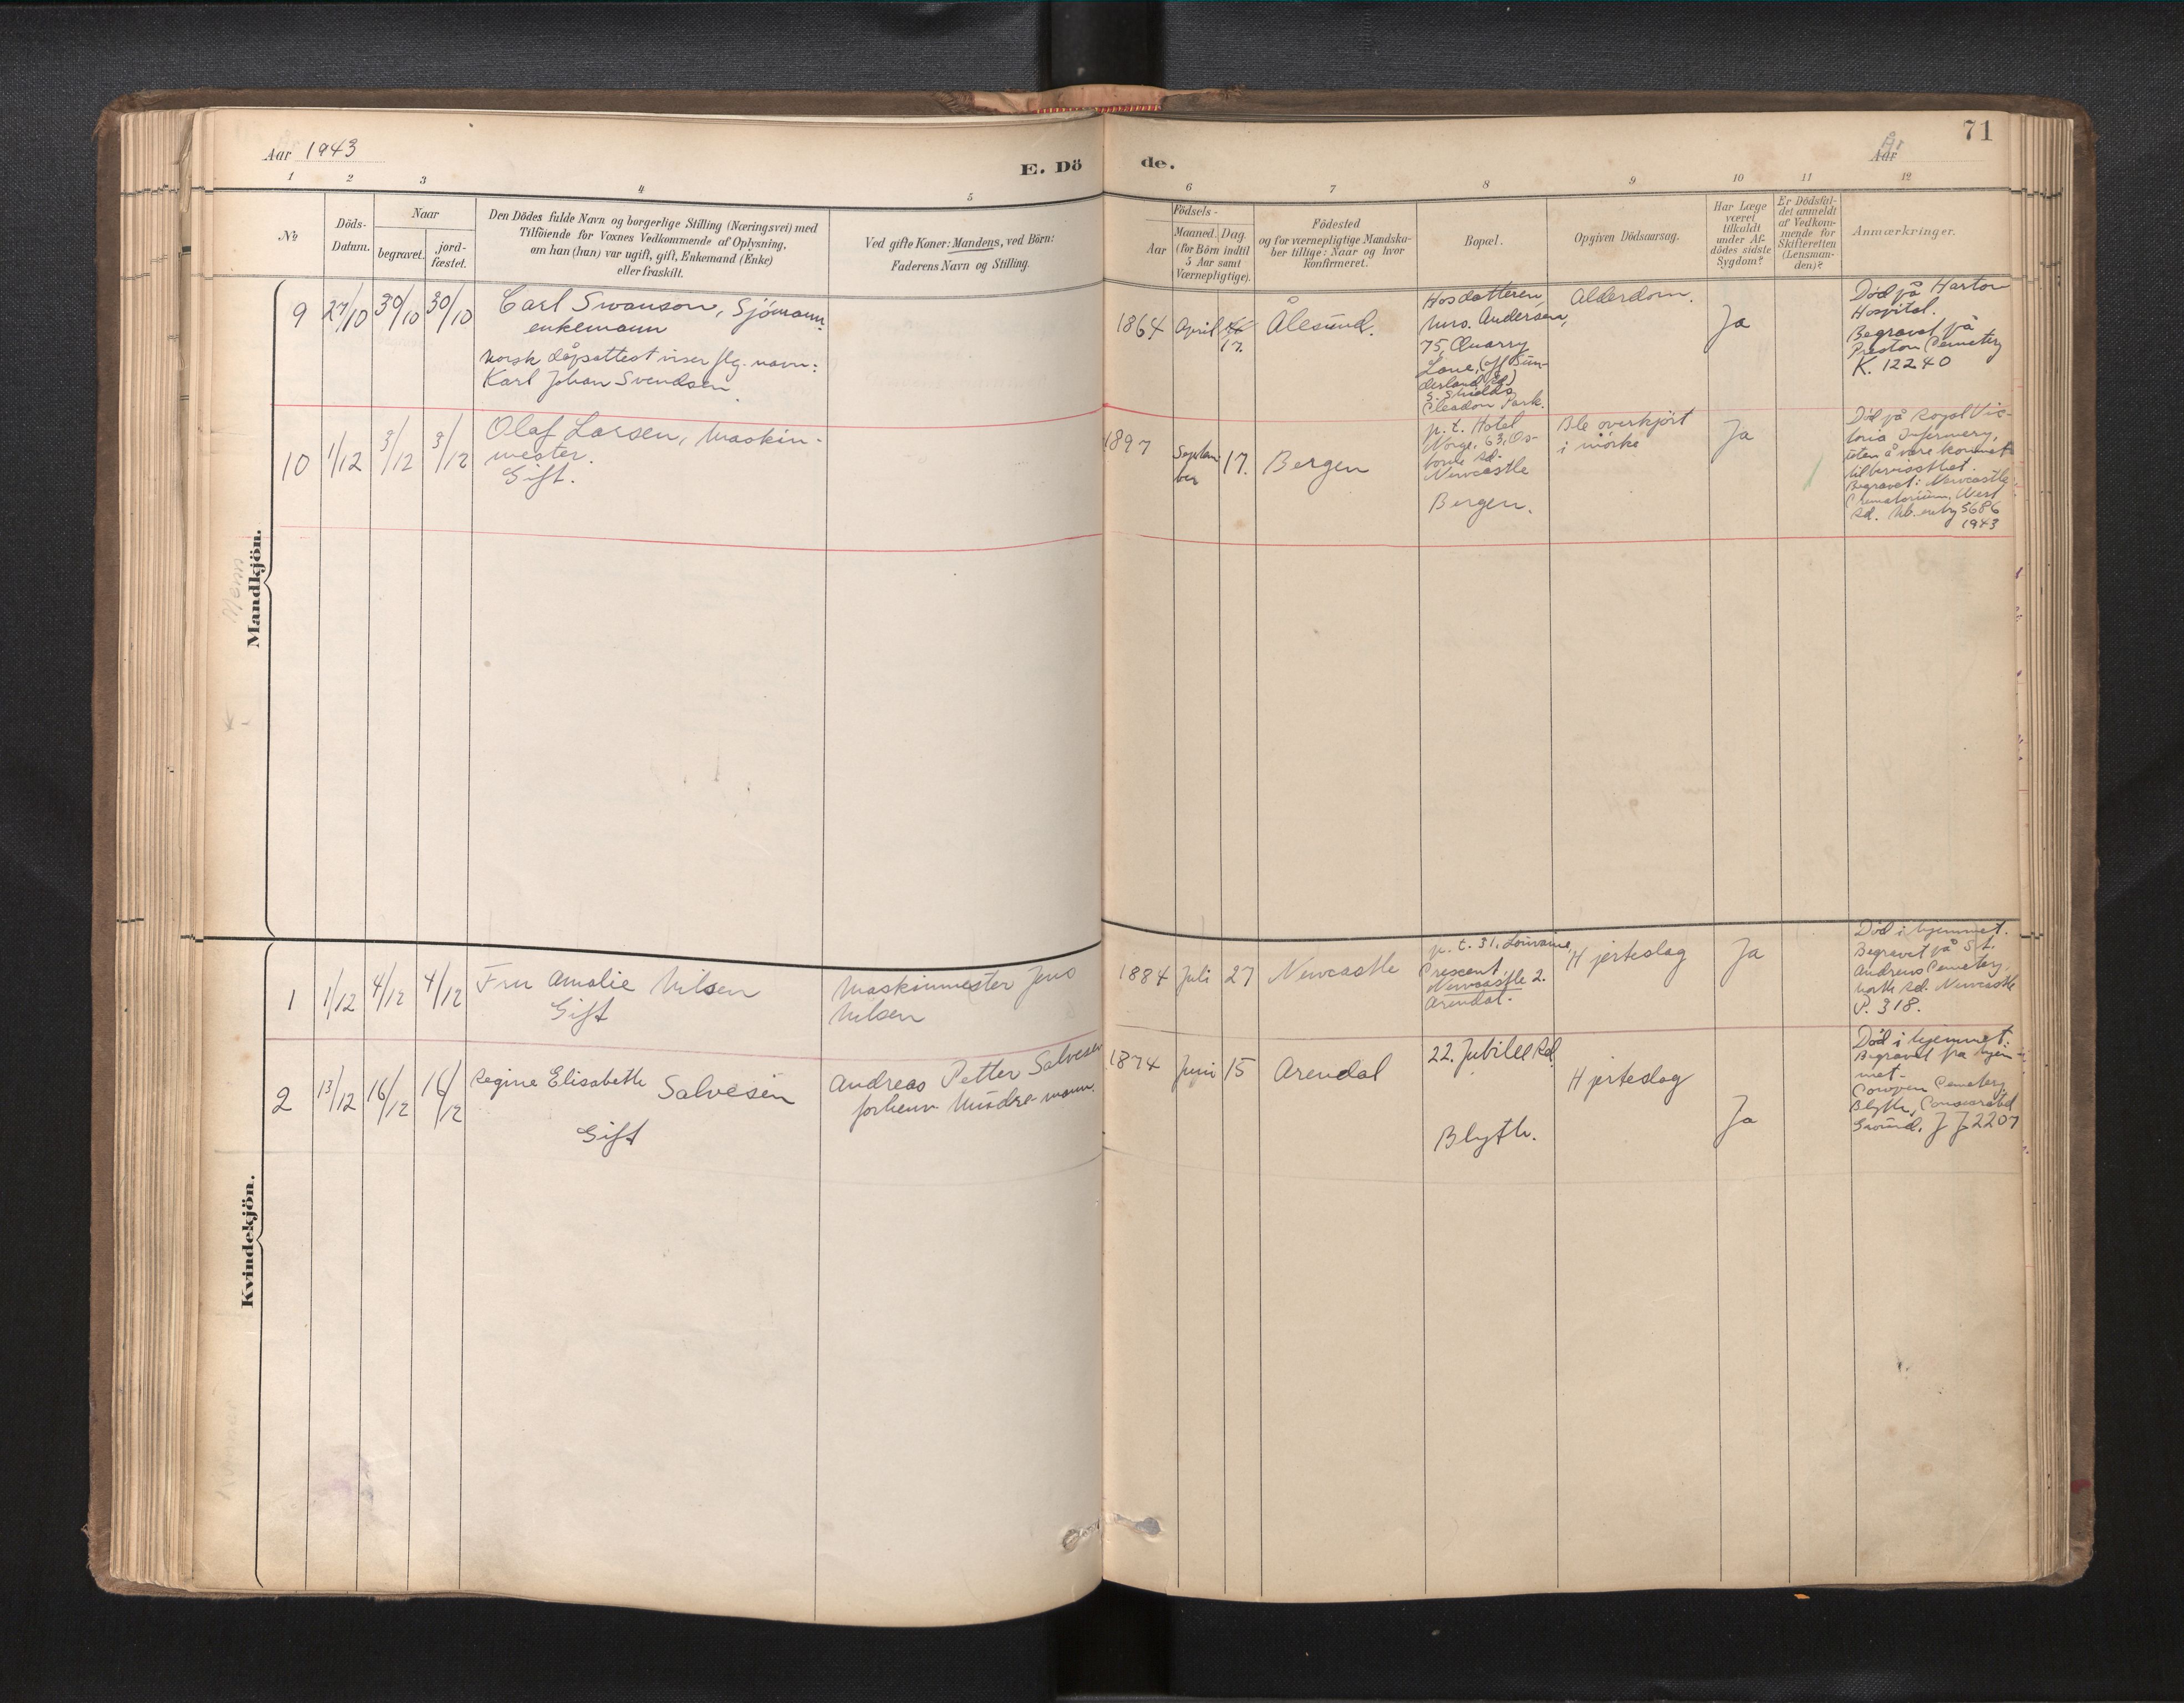 Aar 1943
E. Dö
de.
Aar
År
71
1 2 3 4 5 6 7 8 9 10 11 12
№
Döds-
Datum.
Naar
begravet.
jord-
fæstet.
Den Dödes fulde Navn og borgerlige Stilling (Næringsvei) med
Tilföiende for Voxnes Vedkommende af Oplysning,
om han (hun) var ugift, gift, Enkemand (Enke)
eller fraskilt.
Ved gifte Koner: Mandens, ved Börn:
Faderens Navn og Stilling.
Födsels-
Aar
Maaned. Dag.
(for Börn indtil
5 Aar samt
Værnepligtige).
Födested
og for værnepligtige Mandska-
ber tillige: Naar og hvor
konfirmeret.
Bopæl.
Opgiven Dödsaarsag.
Har Læge
været
tilkaldt
under Af-
dödes sidste
Sygdom?
Er Dödsfal-
det anmeldt
af Vedkom-
mende for
Skifteretten
(Lensman-
den)?
Anmærkninger.
Mandkjön.
Menn
9
27/10
30/10
30/10
Carl Swanson, Sjömann.
enkemann
Norsk dåpsattest viser flg. navn:
Karl Johan Svendsen.
1864
April
17.
Ålesund.
Hos datteren,
Mrs. Andersen,
75, Quarry
Lane, (off Sun-
derland Rd.)
S. Shields
Cleadon Park.
Alderdom.
Ja
Død på Harton
Hospital.
Begravet på
Preston Cemetery
K. 12240
10
1/12
3/12
3/12
Olaf Larsen, Maskin-
mester.
Gift.
1897
Septem-
ber
17.
Bergen
p.t. Hotel
Norge, 63, Os-
borne Rd.
Newcastle
Bergen.
Ble overkjört
i mörke
Ja
Død på Royal Vic-
toria Infirmery,
uten å være kommet
til bevissthet.
Begravet: Newcastle
Crematorium, West
Rd. 5686
1943
Kvindekjön.
Kvinner
1
1/12
4/12
4/12
Fru Amalie Nilsen
Gift
Maskinmester Jens
Nilsen
1884
Juli
27
Newcastle
p.t. 31, Louvaine,
Crescent
Newcastle 2.
Arendal.
Hjerteslag
Ja
Død i hjemmet.
Begravet på St.
Andrews Cemetery,
North Rd. Newcastle
P. 318.
2
13/12
16/12
16/12
Regine Elisabeth Salvesen
Gift
Andreas Petter Salvesen
forhenv.
1874
Juni
15
Arendal
22. Jubilee Rd.
Blyth.
Hjerteslag
Ja
Død i hjemmet.
Begravet fra hjem-
met.
Cowpen Cemetery,
Blyth, Consecrated
Ground. J J 2207